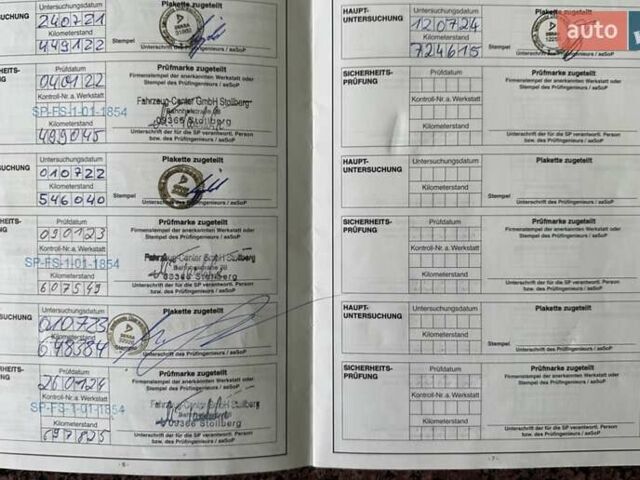 UCHUNG
Untersuchungsdatum
240721
Kilometerstand
449122
Plakette zugeteilt
DEKRA
Stempel
Unterschrift des Prüfingenieurs / aaSoP
HEITS-
G
Prüfdatum
040122
Kontroll-Nr.a. Werkstatt
SP-FS-1-01-1854
Kilometerstand
499045
Prüfmarke zugeteilt
Firmenstempel der anerkannten Werkstatt oder
Stempel des Prüfingenieurs / aaSoP
Fahrzeug-Center GmbH Stollberg
Bahnhofstraße 28
09366 Stollberg
Unterschrift der für die SP verantwortl. Person
bzw. des Prüfingenieurs / aaSoP
UCHUNG
Untersuchungsdatum
010722
Kilometerstand
546040
Plakette zugeteilt
Stempel
Unterschrift des Prüfingenieurs / aaSoP
HEITS-
G
Prüfdatum
090123
Kontroll-Nr.a. Werkstatt
SP-FS-1-01-1854
Kilometerstand
607549
Prüfmarke zugeteilt
Firmenstempel der anerkannten Werkstatt oder
Stempel des Prüfingenieurs / aaSoP
Fahrzeug-Center GmbH Stollberg
Bahnhofstraße 28
09366 Stollberg
Unterschrift der für die SP verantwortl. Person
bzw. des Prüfingenieurs / aaSoP
SUCHUNG
Untersuchungsdatum
010723
Kilometerstand
648384
Plakette zugeteilt
DEKRA
Unterschrift des Prüfingenieurs / aaSoP
HEITS-
G
Prüfdatum
260124
Kontroll-Nr.a. Werkstatt
SP-FS-1-01-1854
Kilometerstand
697825
Prüfmarke zugeteilt
Firmenstempel der anerkannten Werkstatt oder
Stempel des Prüfingenieurs / aaSoP
Fahrzeug-Center GmbH Stollberg
Bahnhofstraße 28
09366 Stollberg
Unterschrift der für die SP verantwortl. Person
bzw. des Prüfingenieurs / aaSoP
- 6 -
HAUPT-
UNTERSUCHUNG
Untersuchungsdatum
120724
Kilometerstand
724615
Plakette zugeteilt
Stempel
Unterschrift des Prüfingenieurs / aaSoP
auto
SICHERHEITS-
PRÜFUNG
Prüfdatum
Kontroll-Nr.a. Werkstatt
Kilometerstand
Prüfmarke zugeteilt
Firmenstempel der anerkannten Werkstatt oder
Stempel des Prüfingenieurs / aaSoP
Unterschrift der für die SP verantwortl. Person
bzw. des Prüfingenieurs / aaSoP
HAUPT-
UNTERSUCHUNG
Untersuchungsdatum
Kilometerstand
Plakette zugeteilt
Stempel
Unterschrift des Prüfingenieurs / aaSoP
SICHERHEITS-
PRÜFUNG
Prüfdatum
Kontroll-Nr.a. Werkstatt
Kilometerstand
Prüfmarke zugeteilt
Firmenstempel der anerkannten Werkstatt oder
Stempel des Prüfingenieurs / aaSoP
Unterschrift der für die SP verantwortl. Person
bzw. des Prüfingenieurs / aaSoP
HAUPT-
UNTERSUCHUNG
Untersuchungsdatum
Kilometerstand
Plakette zugeteilt
Stempel
Unterschrift des Prüfingenieurs / aaSoP
SICHERHEITS-
PRÜFUNG
Prüfdatum
Kontroll-Nr.a. Werkstatt
Kilometerstand
Prüfmarke zugeteilt
Firmenstempel der anerkannten Werkstatt oder
Stempel des Prüfingenieurs / aaSoP
Unterschrift der für die SP verantwortl. Person
bzw. des Prüfingenieurs / aaSoP
- 7 -